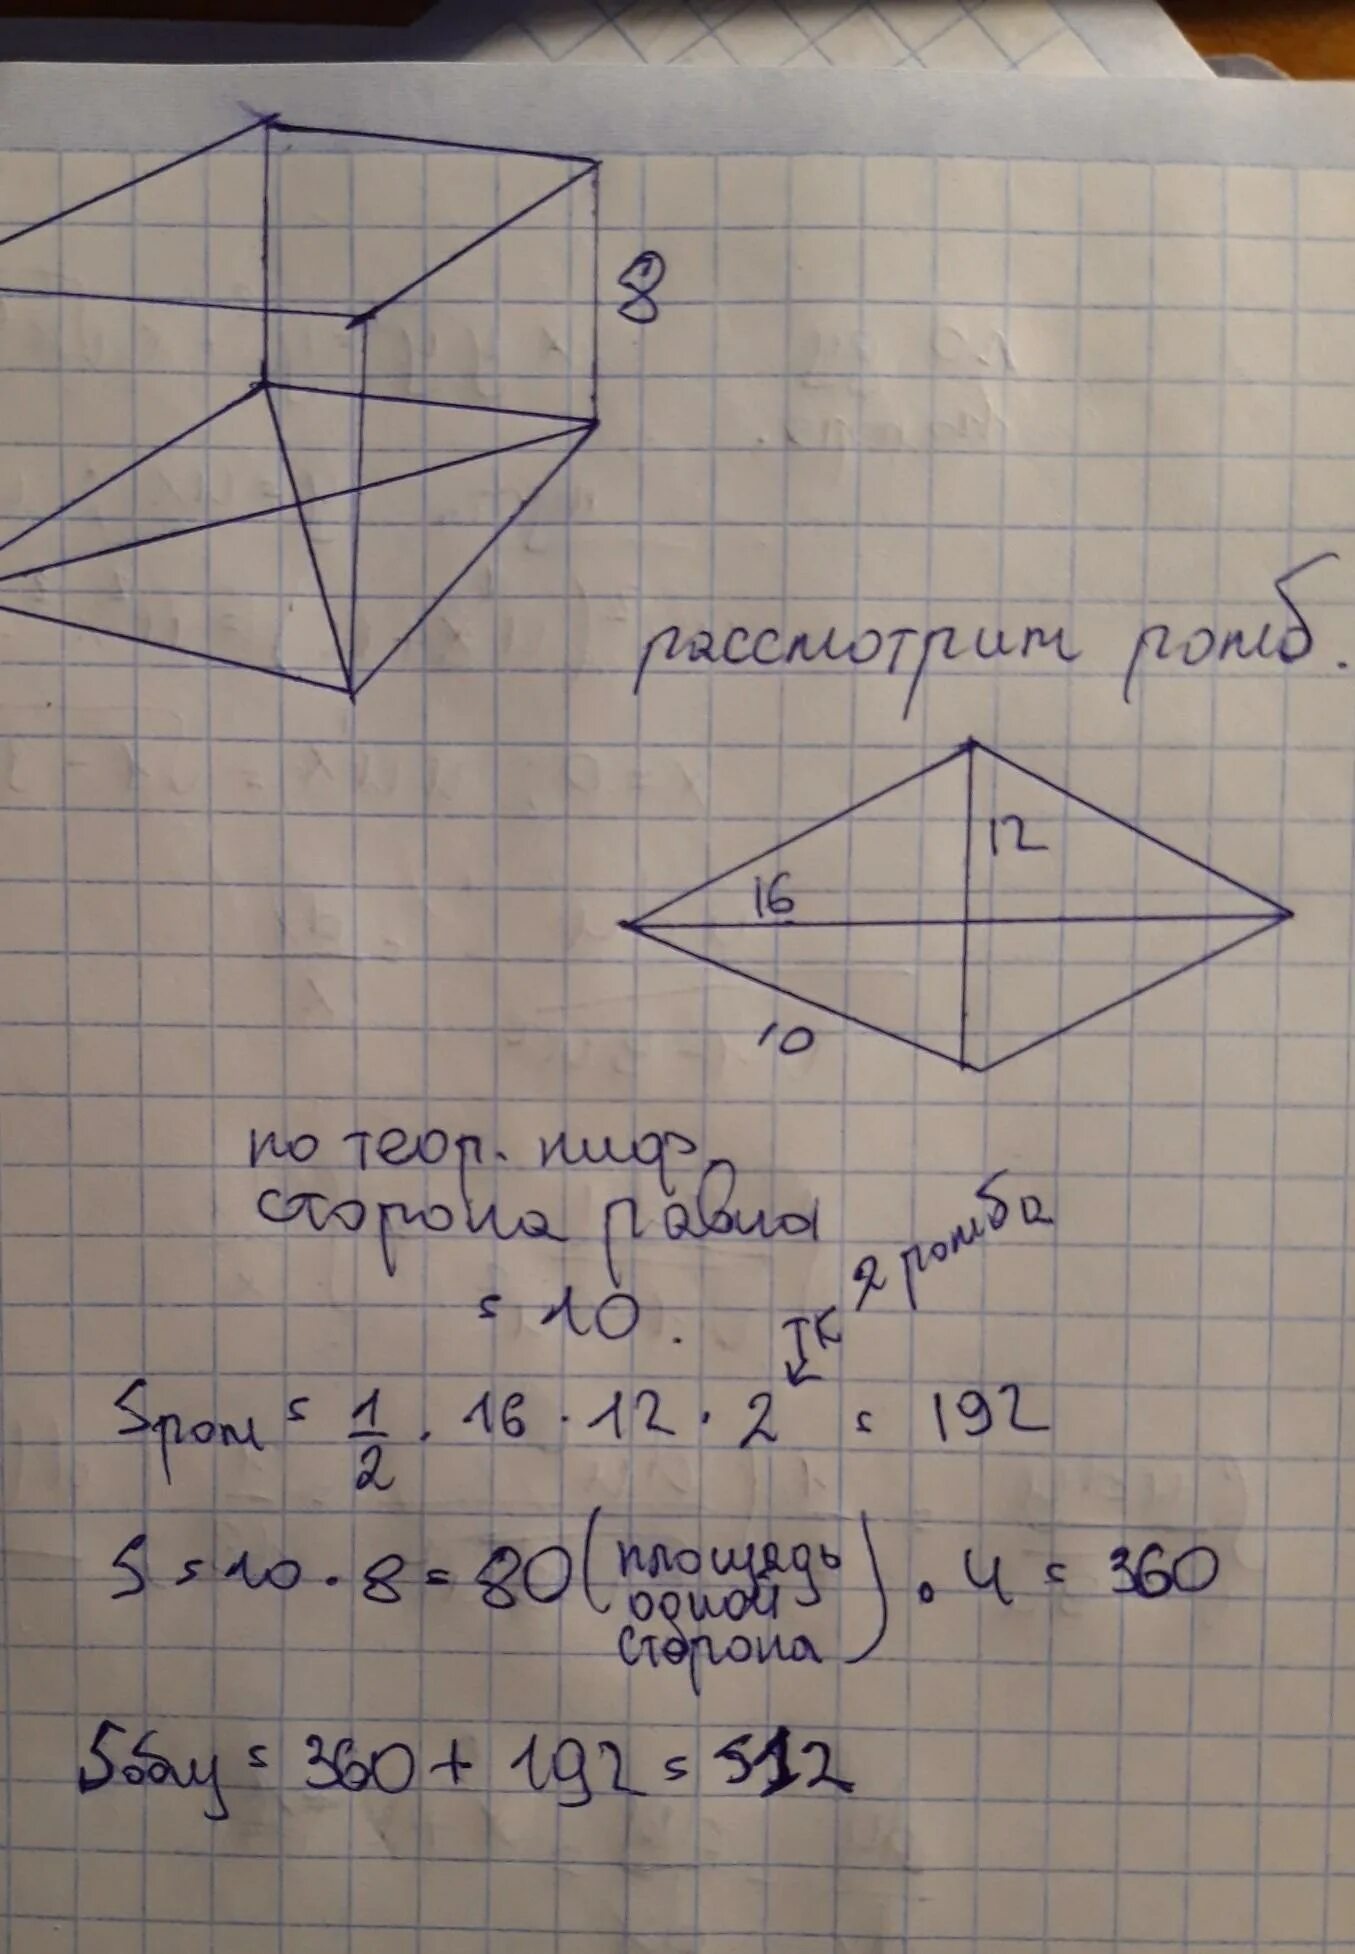 8
рассмотрим ромб.
12
16
10
по теор. пиф.
сторона равна
= 10.
тк 2 ромба
Sром = 1/2 · 16 · 12 · 2 = 192
S = 10 · 8 = 80 (площадь одной сторона) · 4 = 360
Sобщ = 360 + 192 = 512